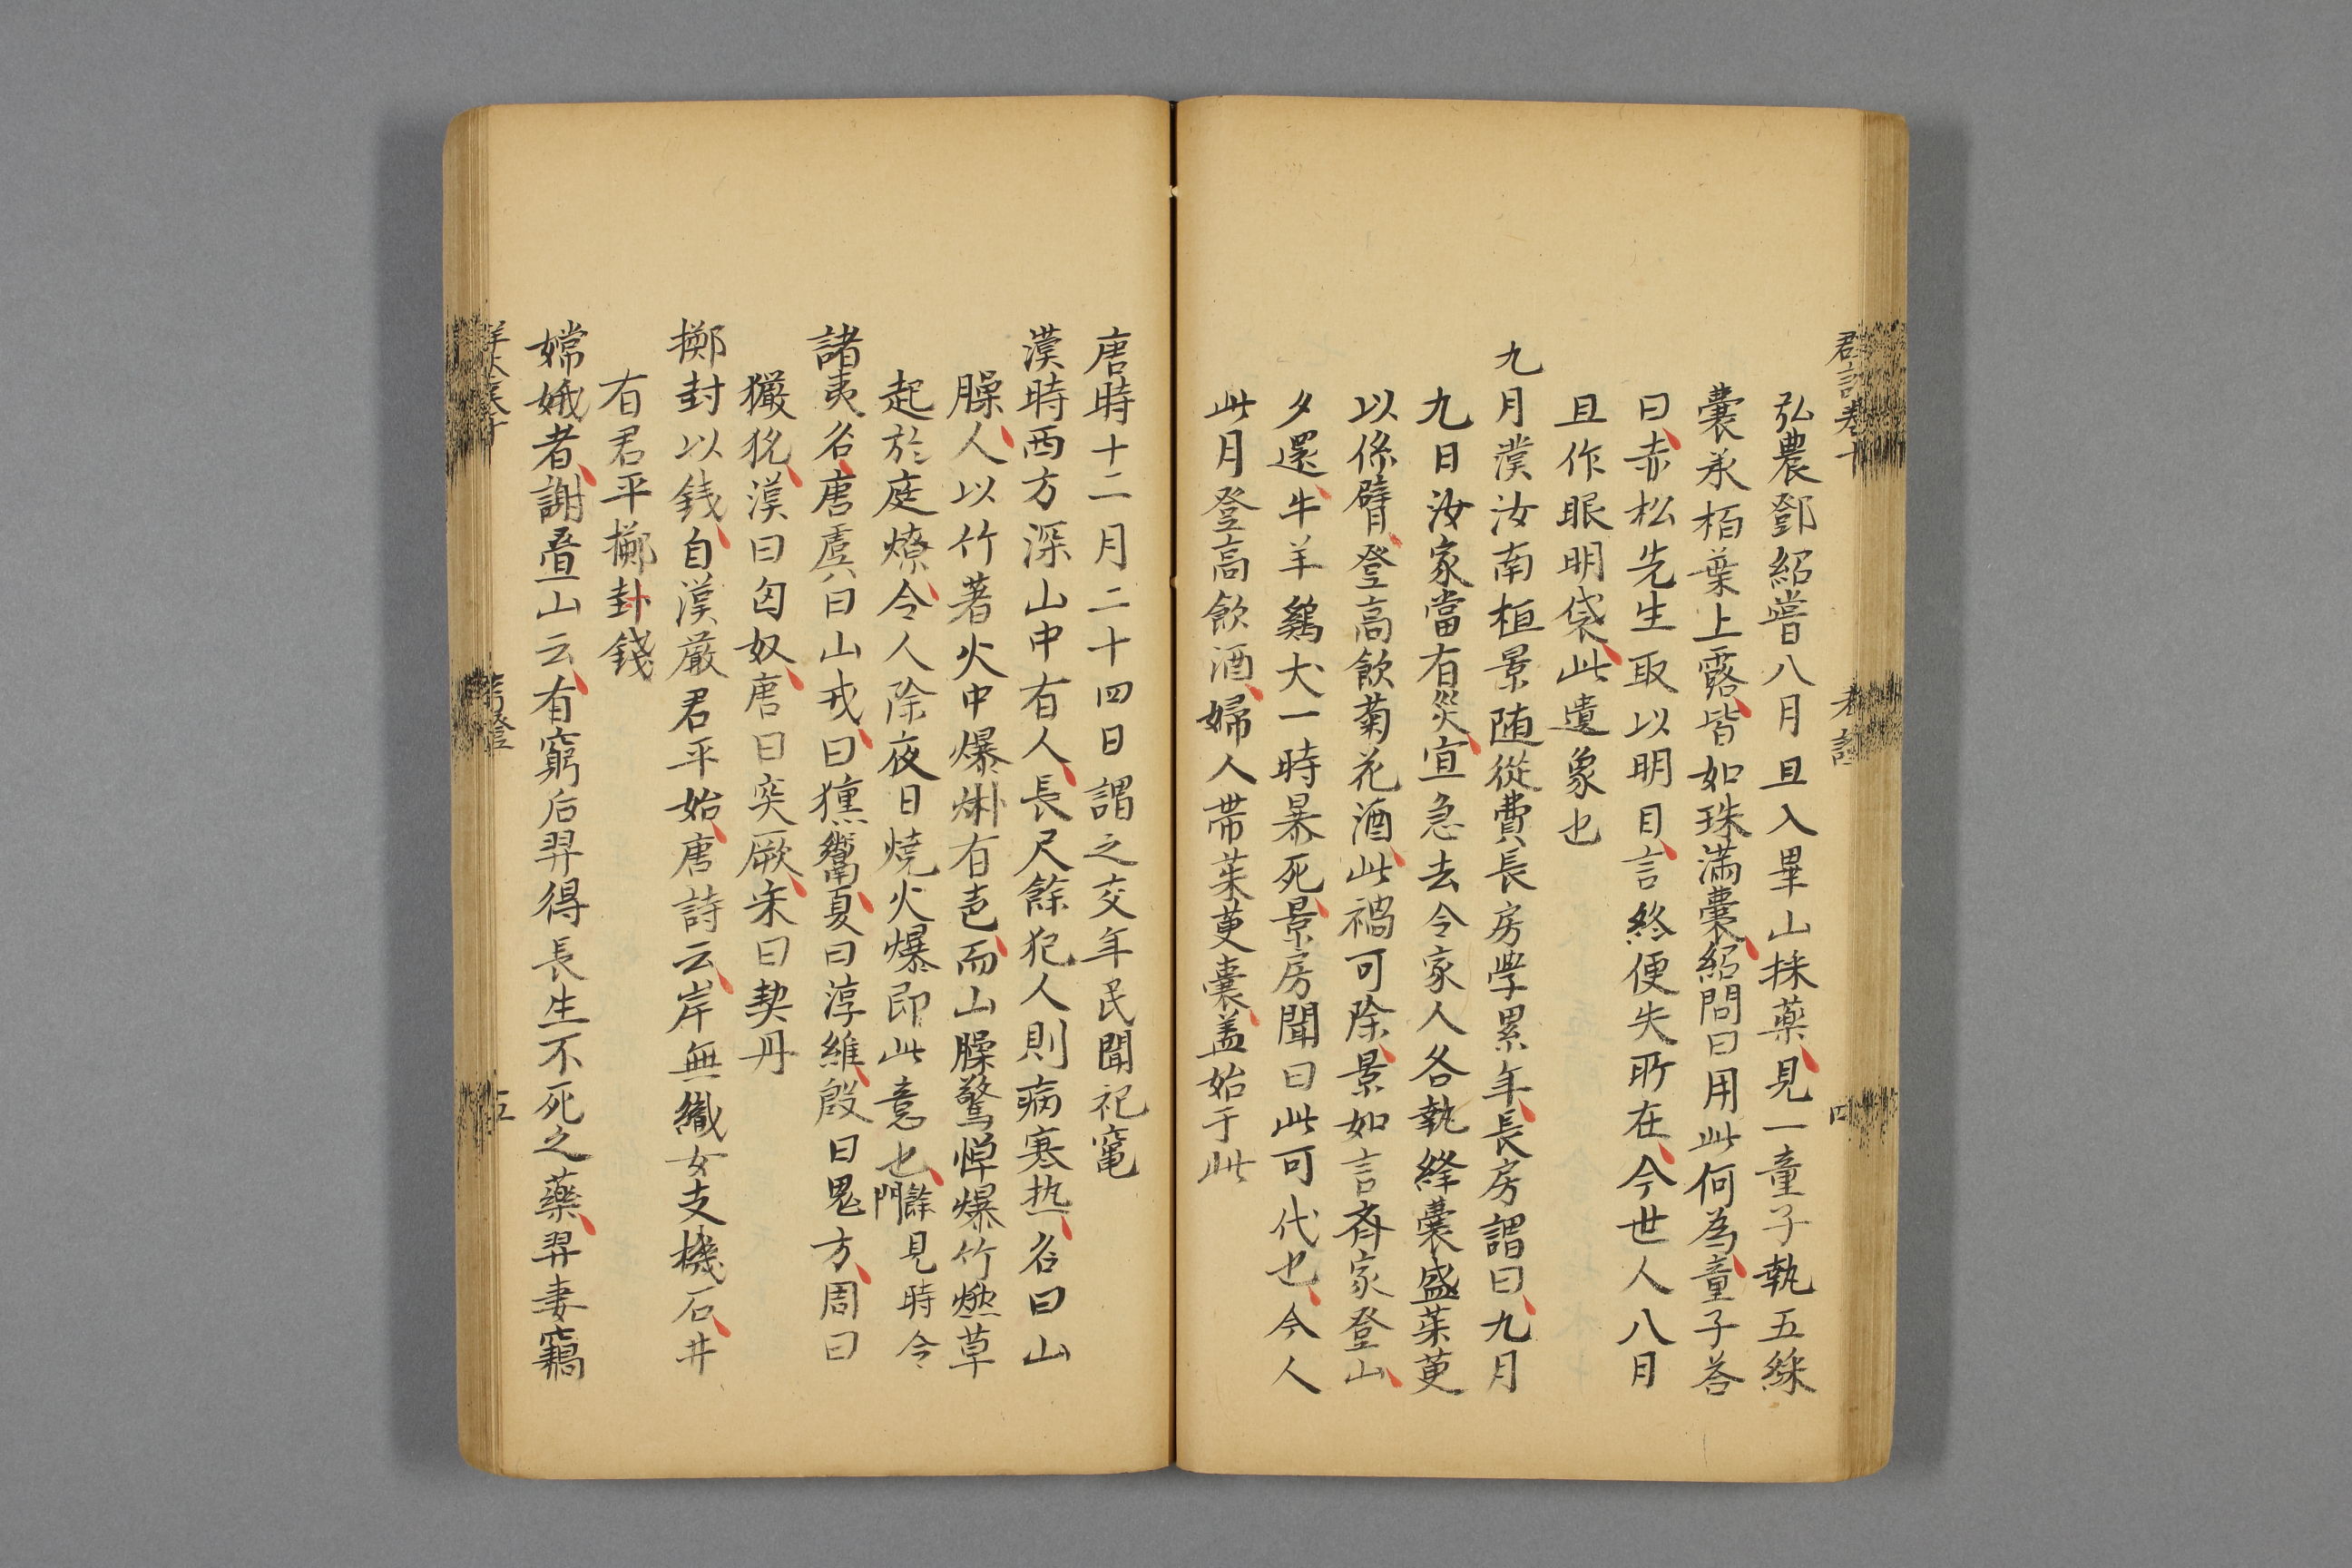 弘農鄧紹嘗八月旦入畢山採藥見一童子執五綵
囊承栢葉上露皆如珠滿囊紹問曰用此何為童子荅
曰赤松先生取以明目言終便失所在今世人八月
旦作眼明袋此遺象也
九月漢汝南桓景随從費長房學累年長房謂曰九月
九日汝家當有災宜急去令家人各執絳囊盛茱萸
以係臂登高飲菊花酒此禍可除景如言齐家登山
夕還牛羊鷄犬一時暴死景房聞曰此可代也今人
此月登高飲酒婦人带茱萸囊盖始于此
唐時十二月二十四日謂之交年民間祀竃
漢時西方深山中有人長尺餘犯人則病寒热名曰山
臊人以竹著火中爆烞有声而山臊驚憚爆竹燃草
起於庭燎今人除夜日燒火爆即此意也餘見時令門
諸夷名唐虞曰山戎曰獯鬻夏曰淳維殷曰鬼方周曰
玁狁漢曰匈奴唐曰突厥宋曰契丹
擲封以銭自漢嚴君平始唐詩云岸無織女支機石井
有君平擲卦錢
嫦娥者謝疊山云有窮后羿得長生不死之藥羿妻竊